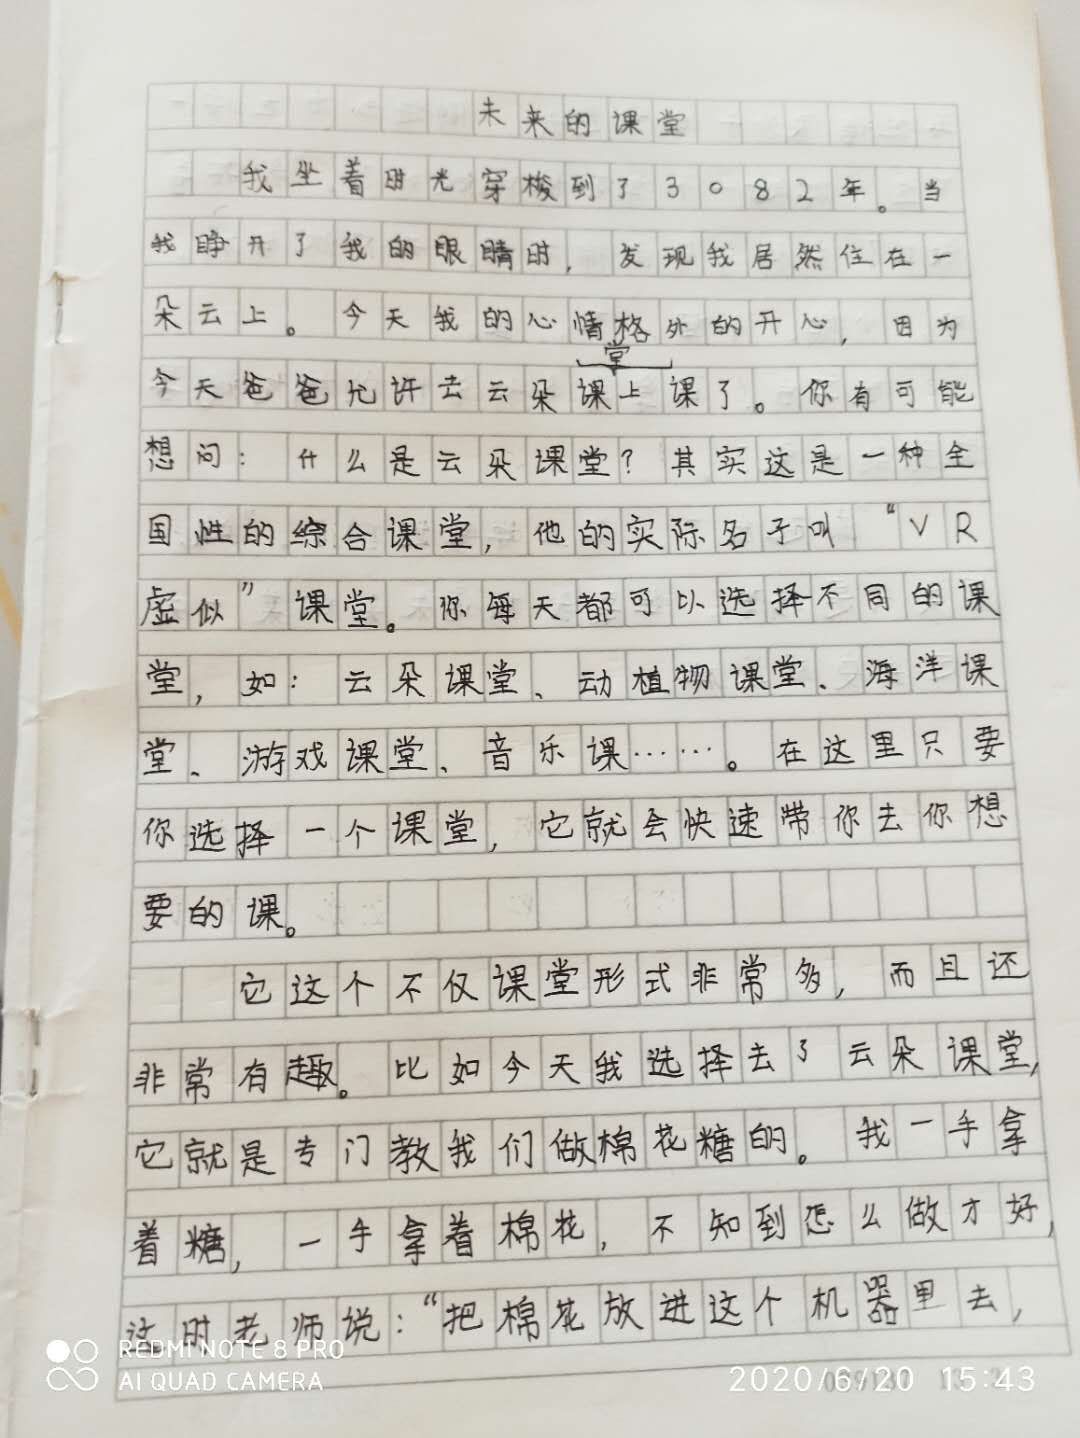 未来的课堂
我坐着时光穿梭到了3082年。当
我睁开了我的眼睛时，发现我居然住在一
朵云上。今天我的心情格外的开心，因为
堂
今天爸爸允许去云朵课上课了。你有可能
想问：什么是云朵课堂？其实这是一种全
国性的综合课堂，他的实际名子叫“VR
虚似”课堂。你每天都可以选择不同的课
堂，如：云朵课堂、动植物课堂、海洋课
堂、游戏课堂、音乐课……。在这里只要
你选择一个课堂，它就会快速带你去你想
要的课。
它这个不仅课堂形式非常多，而且还
非常有趣。比如今天我选择去了云朵课堂，
它就是专门教我们做棉花糖的。我一手拿
着糖，一手拿着棉花，不知到怎么做才好，
这时老师说：“把棉花放进这个机器里去，
REDMI NOTE 8 PRO
AI QUAD CAMERA
2020/6/20 15:43